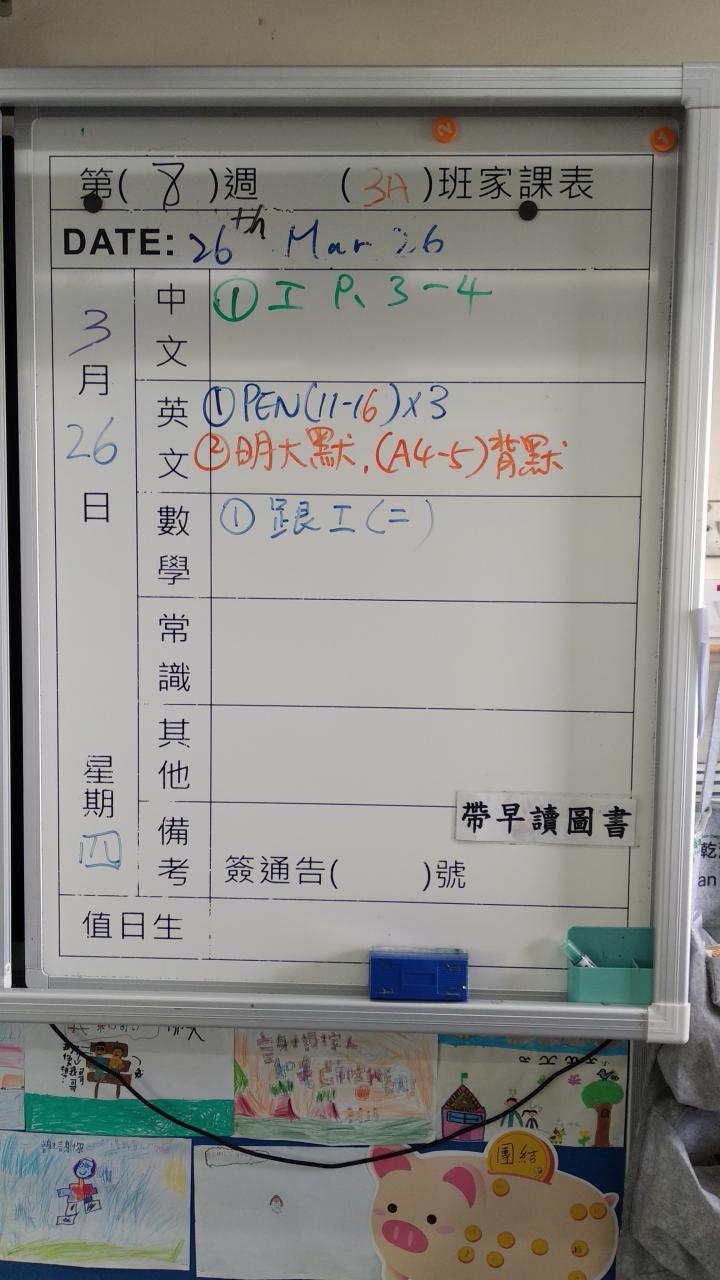 2
1
第( 8 )週 ( 3A )班家課表
DATE: 26th Mar 26
3月26日 星期四
中文 ① 工 P. 3-4
英文 ① PEN(11-16)x3
② 明大默, (A4-5)背默
數學 ① 跟工(二)
常識
其他
備考 帶早讀圖書
簽通告( )號
值日生
團結